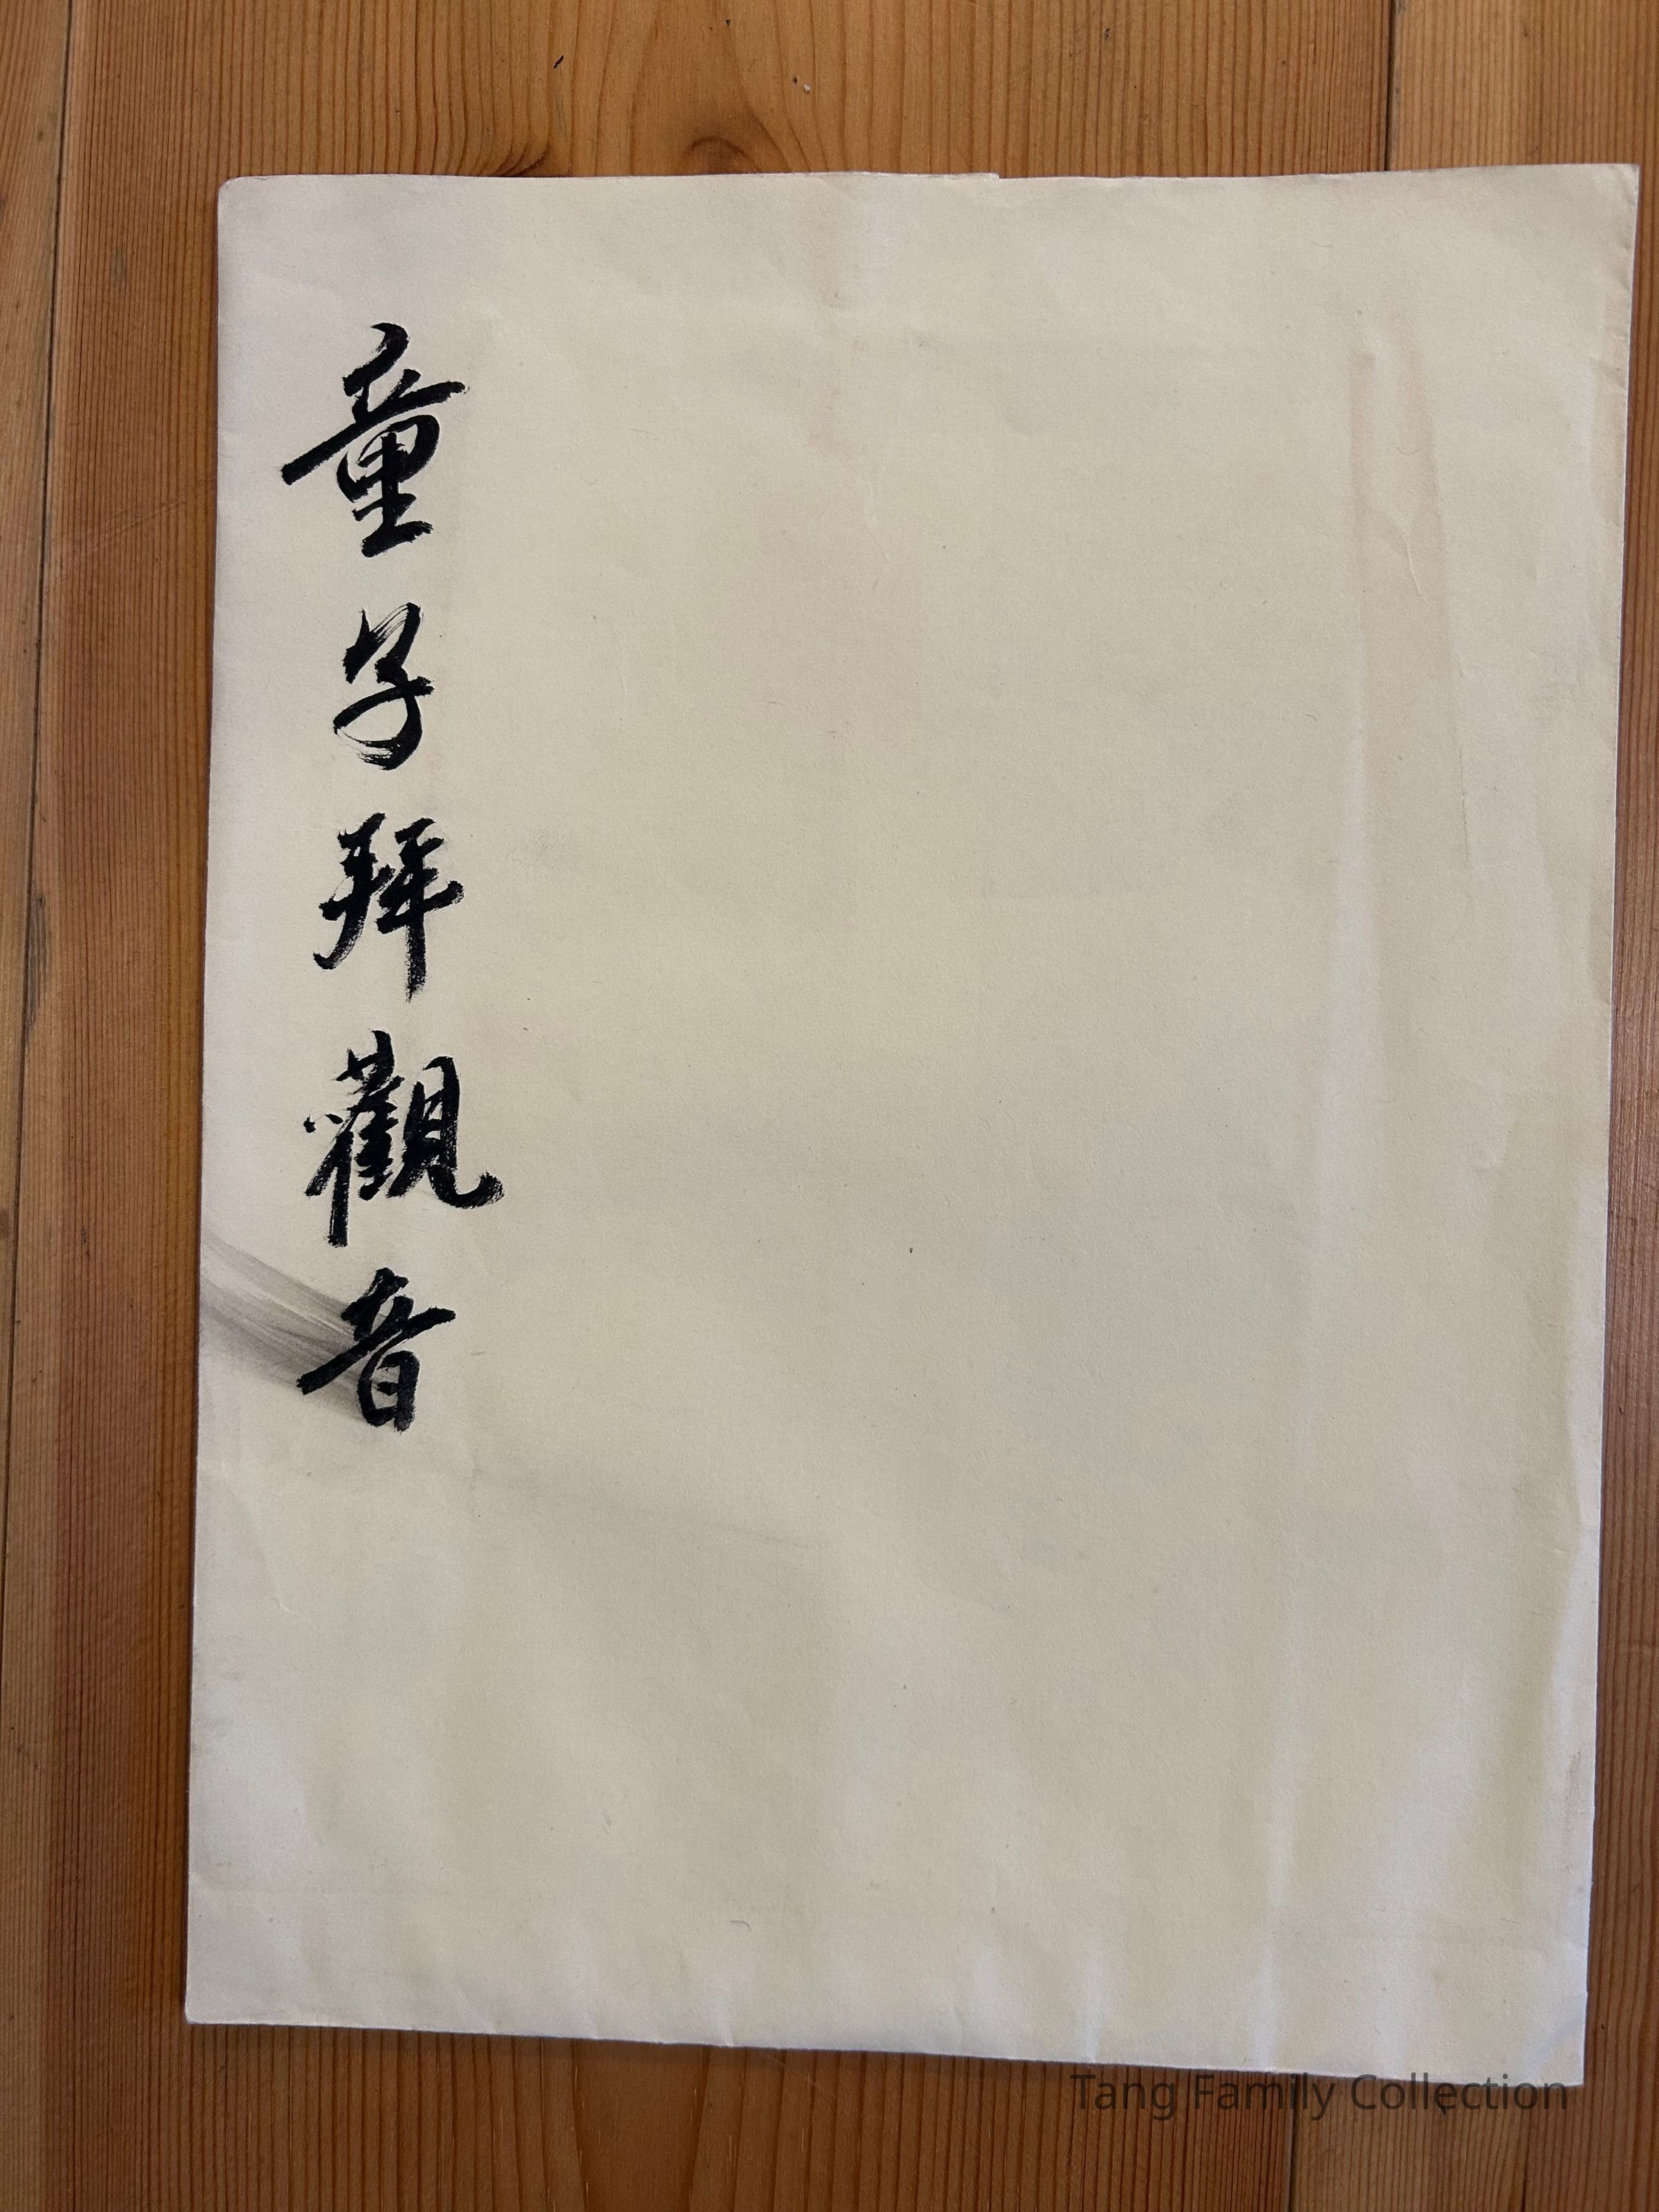 童子拜觀音
Tang Family Collection